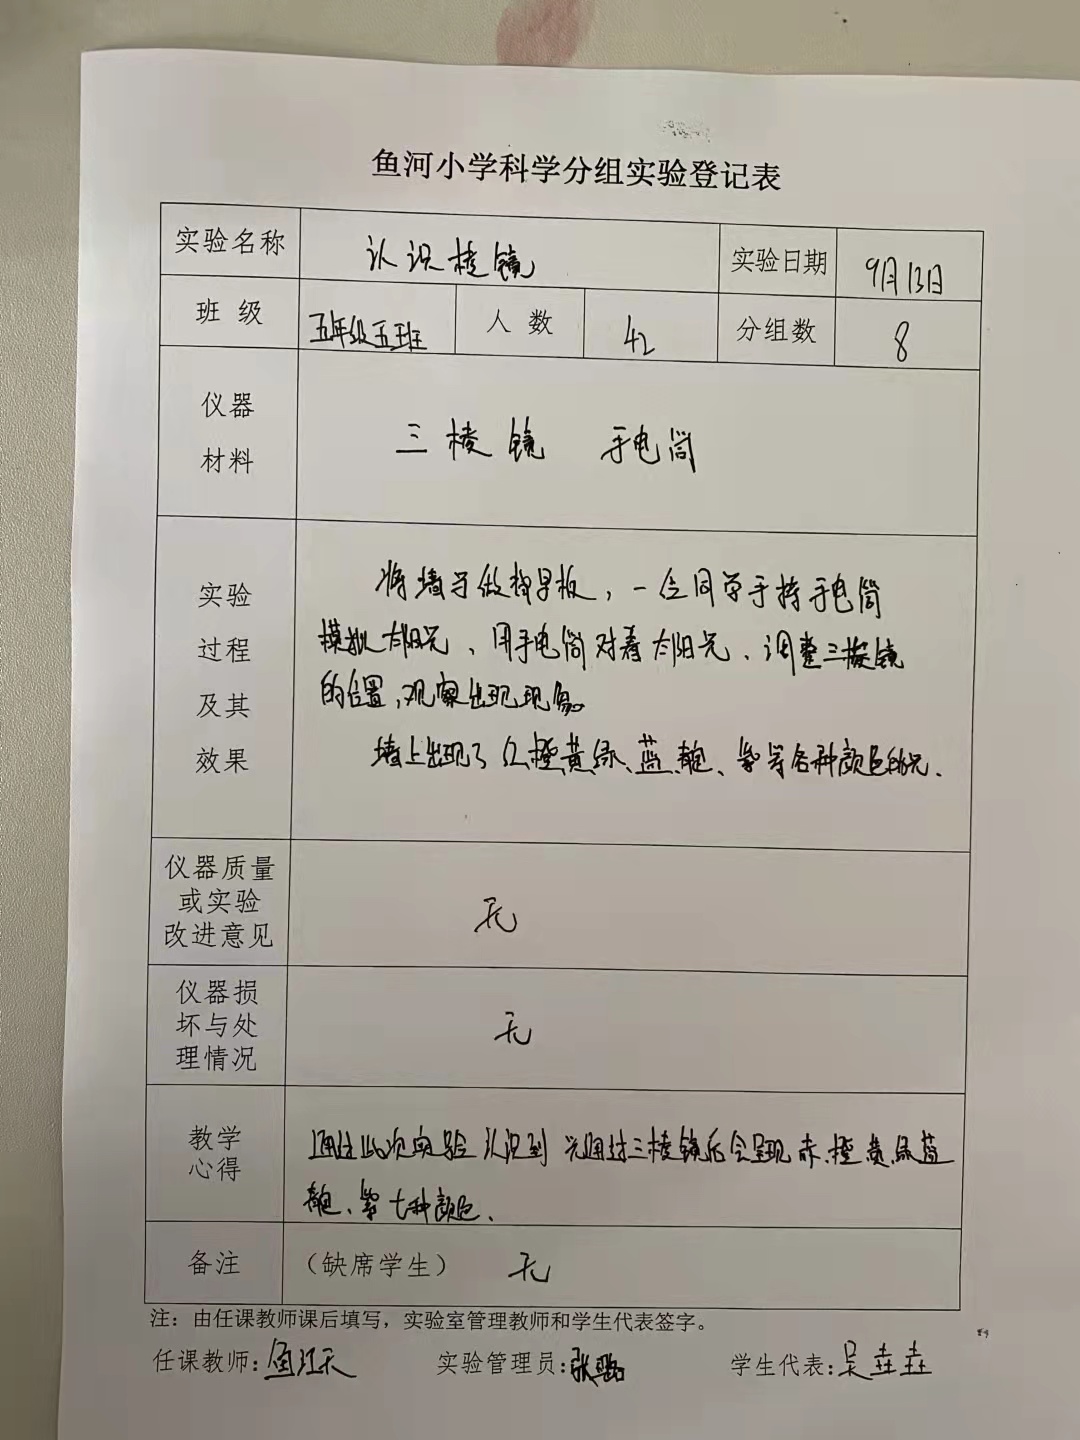 鱼河小学科学分组实验登记表
实验名称 认识棱镜 实验日期 9月13日
班级 五年级五班 人数 42 分组数 8
仪器
材料
三棱镜 手电筒
实验
过程
及其
效果
将墙子做挡导板，一位同学手持手电筒
模拟太阳光、用手电筒对着太阳光、调整三棱镜
的位置，观察出现现象。
墙上出现了红、橙、黄、绿、蓝、靛、紫等各种颜色的光、
仪器质量
或实验
改进意见
无
仪器损
坏与处
理情况
无
教学
心得
通过此次实验认识到 光通过三棱镜后会呈现赤、橙、黄、绿、蓝
靛、紫七种颜色、
备注 （缺席学生） 无
注：由任课教师课后填写，实验室管理教师和学生代表签字。
任课教师：鱼江天 实验管理员：张 学生代表：吴垚垚